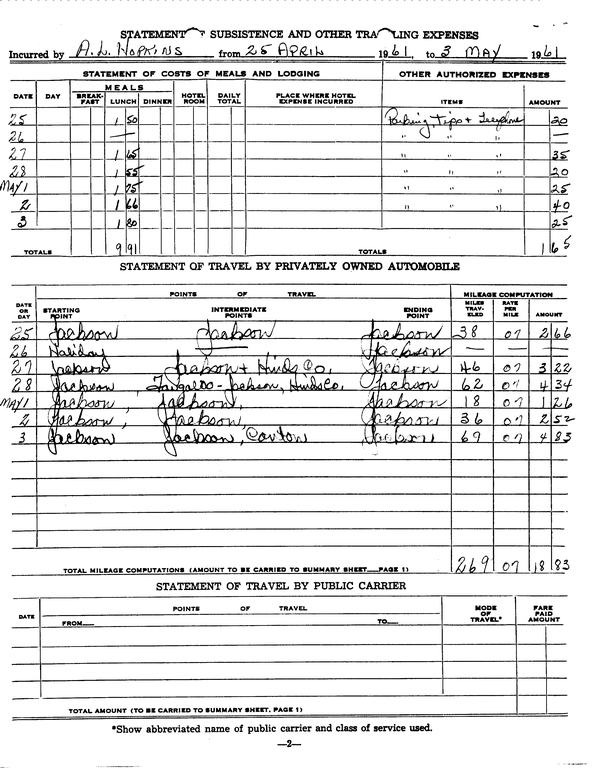 STATEMENT OF SUBSISTENCE AND OTHER TRAVELING EXPENSES
Incurred by A.L. HOPKINS from 25 APRIL 1961, to 3 MAY 1961
STATEMENT OF COSTS OF MEALS AND LODGING OTHER AUTHORIZED EXPENSES
DATE DAY MEALS BREAK-FAST LUNCH DINNER HOTEL ROOM DAILY TOTAL PLACE WHERE HOTEL EXPENSE INCURRED ITEMS AMOUNT
25 1 50 Parking, Tips + Telephone 20
26 — " " " —
27 1 65 " " " 35
28 1 55 " " " 20
MAY 1 1 75 " " " 25
2 1 66 " " " 40
3 1 80 25
TOTALS 9 91 TOTALS 1 65
STATEMENT OF TRAVEL BY PRIVATELY OWNED AUTOMOBILE
DATE OR DAY POINTS OF TRAVEL MILEAGE COMPUTATION
STARTING POINT INTERMEDIATE POINTS ENDING POINT MILES TRAV-ELED RATE PER MILE AMOUNT
25 Jackson Jackson Jackson 38 07 2 66
26 Holiday Jackson — — —
27 Jackson Jackson + Hinds Co, Jackson 46 07 3 22
28 Jackson, Tougaloo-Jackson, Hinds Co, Jackson 62 07 4 34
MAY 1 Jackson, Jackson, Jackson 18 07 1 26
2 Jackson, Jackson, Jackson 36 07 2 52
3 Jackson Jackson, Canton Jackson 69 07 4 83
TOTAL MILEAGE COMPUTATIONS (AMOUNT TO BE CARRIED TO SUMMARY SHEET PAGE 1) 269 07 18 83
STATEMENT OF TRAVEL BY PUBLIC CARRIER
DATE POINTS OF TRAVEL MODE OF TRAVEL* FARE PAID AMOUNT
FROM TO
TOTAL AMOUNT (TO BE CARRIED TO SUMMARY SHEET, PAGE 1)
*Show abbreviated name of public carrier and class of service used.
—2—